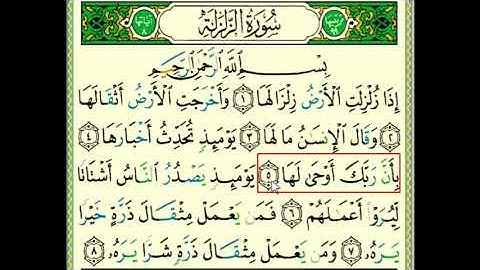 سُورَةُ الزَّلْزَلَةِ
بِسْمِ اللَّهِ الرَّحْمَٰنِ الرَّحِيمِ
إِذَا زُلْزِلَتِ الْأَرْضُ زِلْزَالَهَا ١ وَأَخْرَجَتِ الْأَرْضُ أَثْقَالَهَا
٢ وَقَالَ الْإِنسَٰنُ مَا لَهَا ٣ يَوْمَئِذٍ تُحَدِّثُ أَخْبَارَهَا ٤
بِأَنَّ رَبَّكَ أَوْحَىٰ لَهَا ٥ يَوْمَئِذٍ يَصْدُرُ النَّاسُ أَشْتَاتًا
لِّيُرَوْا أَعْمَٰلَهُمْ ٦ فَمَن يَعْمَلْ مِثْقَالَ ذَرَّةٍ خَيْرًا
يَرَهُۥ ٧ وَمَن يَعْمَلْ مِثْقَالَ ذَرَّةٍ شَرًّا يَرَهُۥ ٨